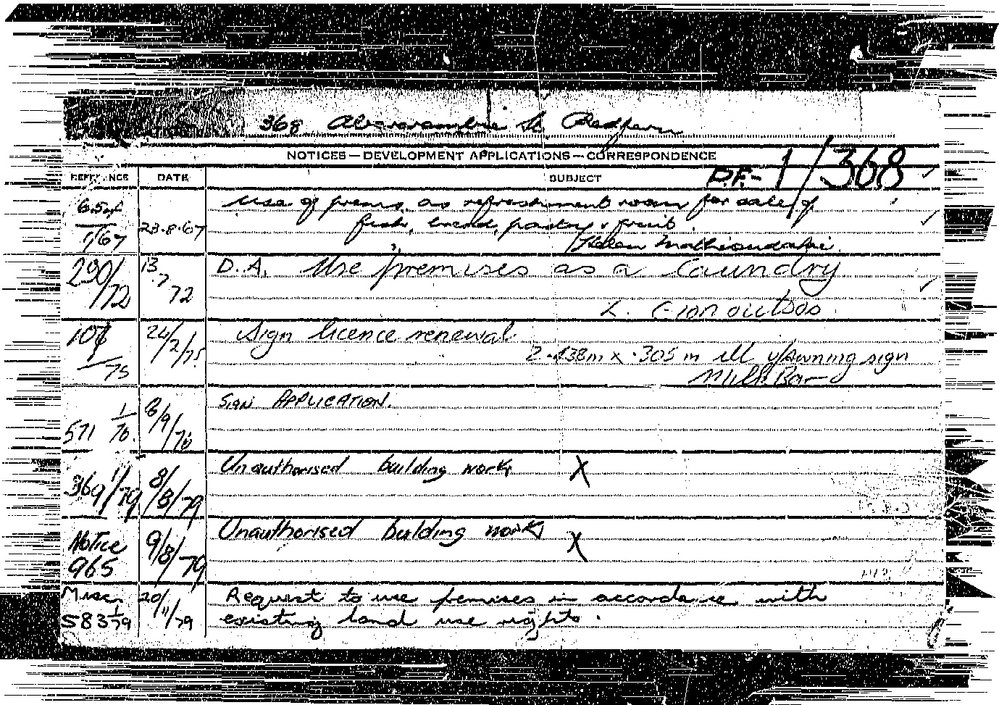 368 Abercrombie St Redfern
NOTICES—DEVELOPMENT APPLICATIONS—CORRESPONDENCE
REFERENCE DATE SUBJECT D.F.- 1/368
1/67 23.8.67 Use of prems. as refreshment room for sale of
fish, bread, pastry & fruit.
Helen
290/72 13.7.72 D.A. Use premises as a laundry
L.
107/75 24/2/75 Sign licence renewal
2.438m x .305 m ill y/awning sign
Milk Bar
571 1/78 6/9/78 SIGN APPLICATION.
369/79 8/8/79 Unauthorised building work X
Notice 965 9/8/79 Unauthorised building work X
Misc. 583 1/79 20/11/79 Request to use premises in accordance with
existing land use rights.